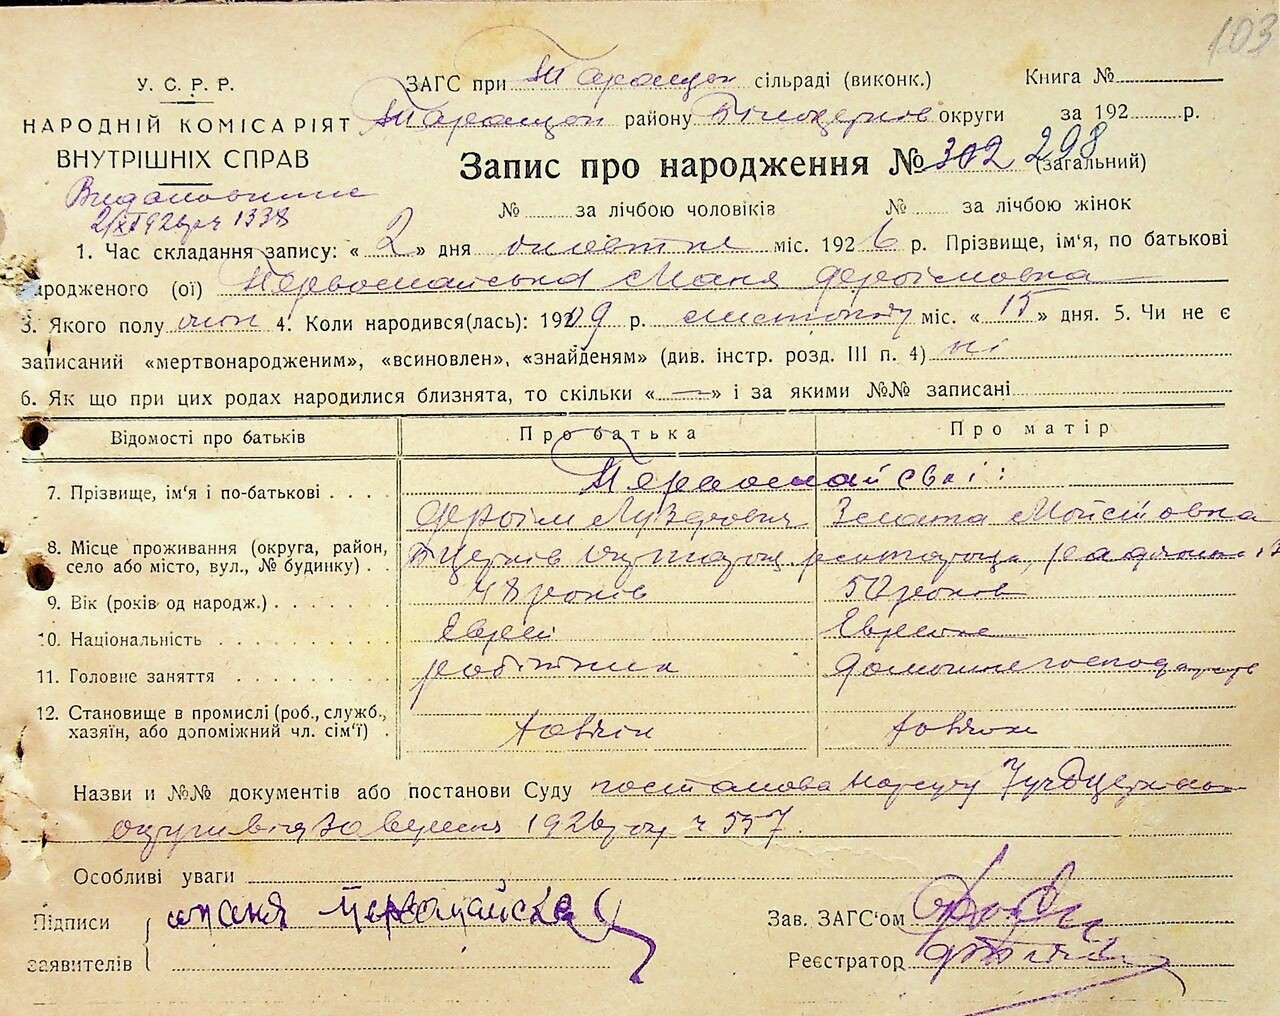 103
У. С. Р. Р.
НАРОДНІЙ КОМІСАРІЯТ
ВНУТРІШНІХ СПРАВ
ЗАГС при Таращан. сільраді (виконк.) Книга №
Таращан. району Білоцерков округи за 192 р.
Запис про народження № 302 298 (загальний)
№ за лічбою чоловіків № за лічбою жінок
1338
1. Час складання запису: « 2 » дня міс. 192 6 р. Прізвище, ім'я, по батькові
народженого (ої) Первомайська Маня Фероімовна
3. Якого полу жін 4. Коли народився(лась): 1909 р. листопаду міс. « 15 » дня. 5. Чи не є
записаний «мертвонародженим», «всиновлен», «знайденям» (див. інстр. розд. III п. 4) ні
6. Як що при цих родах народилися близнята, то скільки « — » і за якими №№ записані
Відомості про батьків Про батька Про матір
7. Прізвище, ім'я і по-батькові Первомайські:
Фероім Злата Мойсеовна
8. Місце проживання (округа, район,
село або місто, вул., № будинку)
9. Вік (років од народж.) 48 років 50 роков
10. Національність Еврей Еврейка
11. Головне заняття робітник домашне господарств
12. Становище в промислі (роб., служб.,
хазяїн, або допоміжний чл. сім'ї)
Назви и №№ документів або постанови Суду постанова нарсуду
округи від 30 вересня 1926 року ч 557.
Особливі уваги
Підписи
заявителів
маня Первомайска
Зав. ЗАГС'ом
Реєстратор